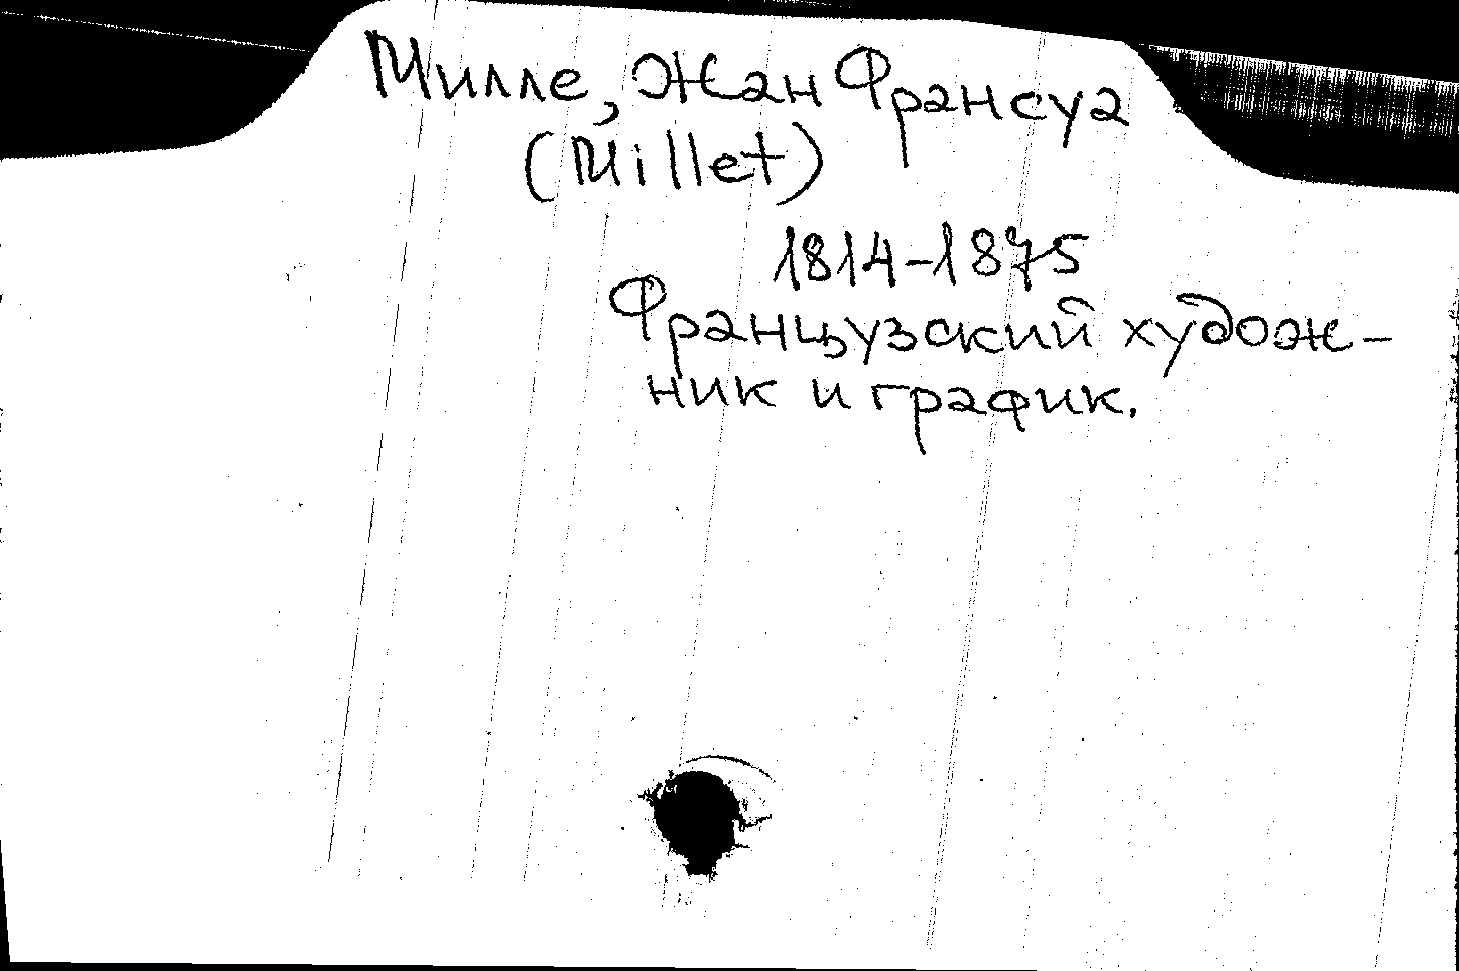 Милле, Жан Франсуа
(Millet)
1814-1875
Французский худож-
ник и график.